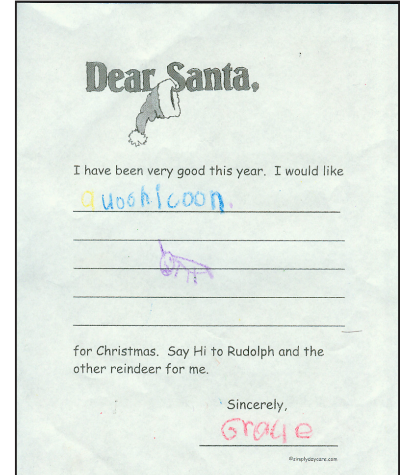 Dear Santa,
I have been very good this year. I would like
a uoohicoon.
for Christmas. Say Hi to Rudolph and the
other reindeer for me.
Sincerely,
Gracie
©simplydaycare.com